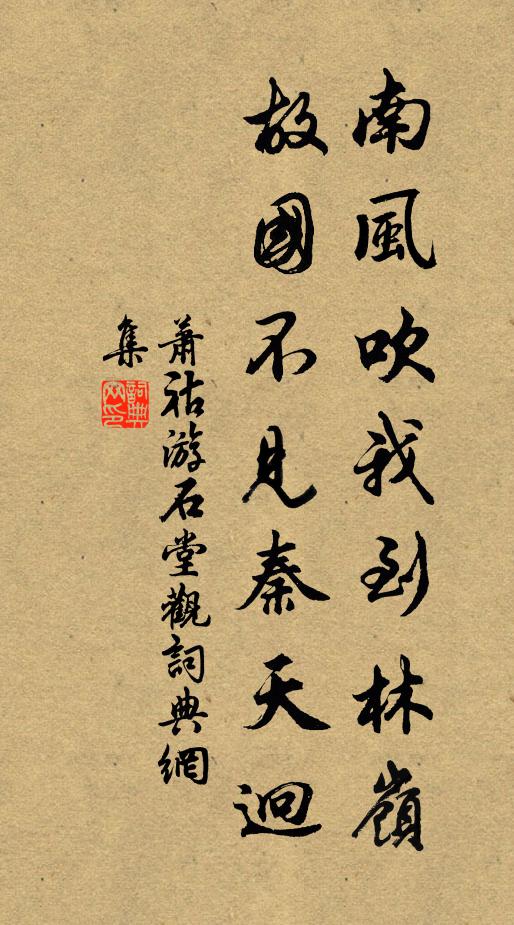 南風吹我到林嶺
故國不見秦天迥
蕭祜游石堂觀詞典網
集
詞典網印